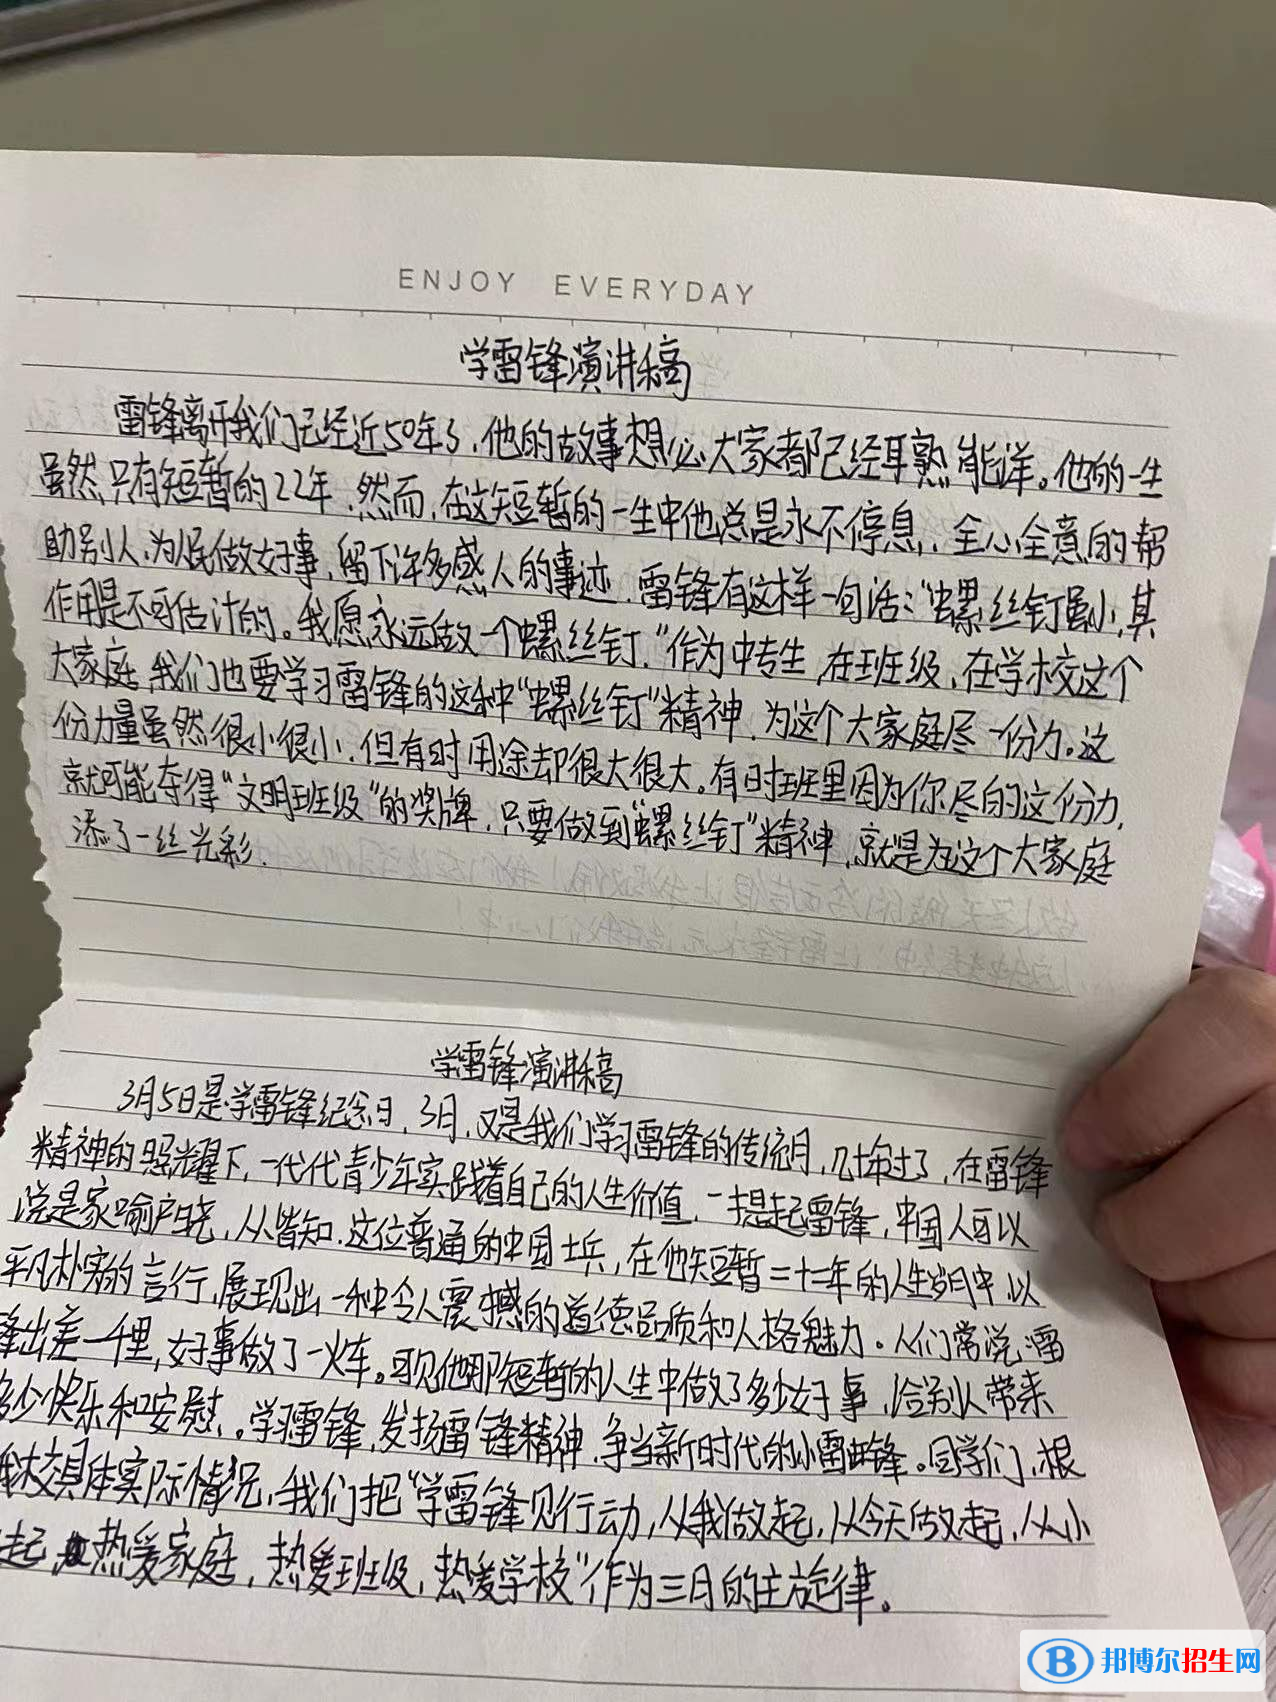 ENJOY EVERYDAY
学雷锋演讲稿
雷锋离开我们已经近50年了，他的故事想必大家都已经耳熟能详。他的一生
虽然只有短暂的22年，然而，在这短暂的一生中他总是永不停息，全心全意的帮
助别人，为人民做好事，留下许多感人的事迹，雷锋有这样一句话：“螺丝钉虽小，其
作用是不可估计的。我愿永远做一个螺丝钉，”作为中专生，在班级，在学校这个
大家庭，我们也要学习雷锋的这种“螺丝钉”精神，为这个大家庭尽一份力。这
份力量虽然很小很小，但有时用途却很大很大。有时班里因为你尽的这份力，
就可能夺得“文明班级”的奖牌，只要做到“螺丝钉”精神，就是为这个大家庭
添了一丝光彩，
学雷锋演讲稿
3月5日是学雷锋纪念日，3月，又是我们学习雷锋的传统月，几十年过了，在雷锋
精神的照耀下，一代代青少年实践着自己的人生价值，一提起雷锋，中国人可以
说是家喻户晓，人皆知，这位普通的中国士兵，在他短暂二十二年的人生岁月中，以
平凡朴实的言行，展现出一种令人震撼的道德品质和人格魅力。人们常说，雷
锋出差一千里，好事做了一火车。可见他那短暂的人生中做了多少好事，给别人带来
多少快乐和安慰。学习雷锋，发扬雷锋精神，争当新时代的小雷锋。同学们，根
我校具体实际情况，我们把“学雷锋见行动，从我做起，从今天做起，从小
起，热爱家庭，热爱班级，热爱学校”作为三月的主旋律。
邦博尔招生网